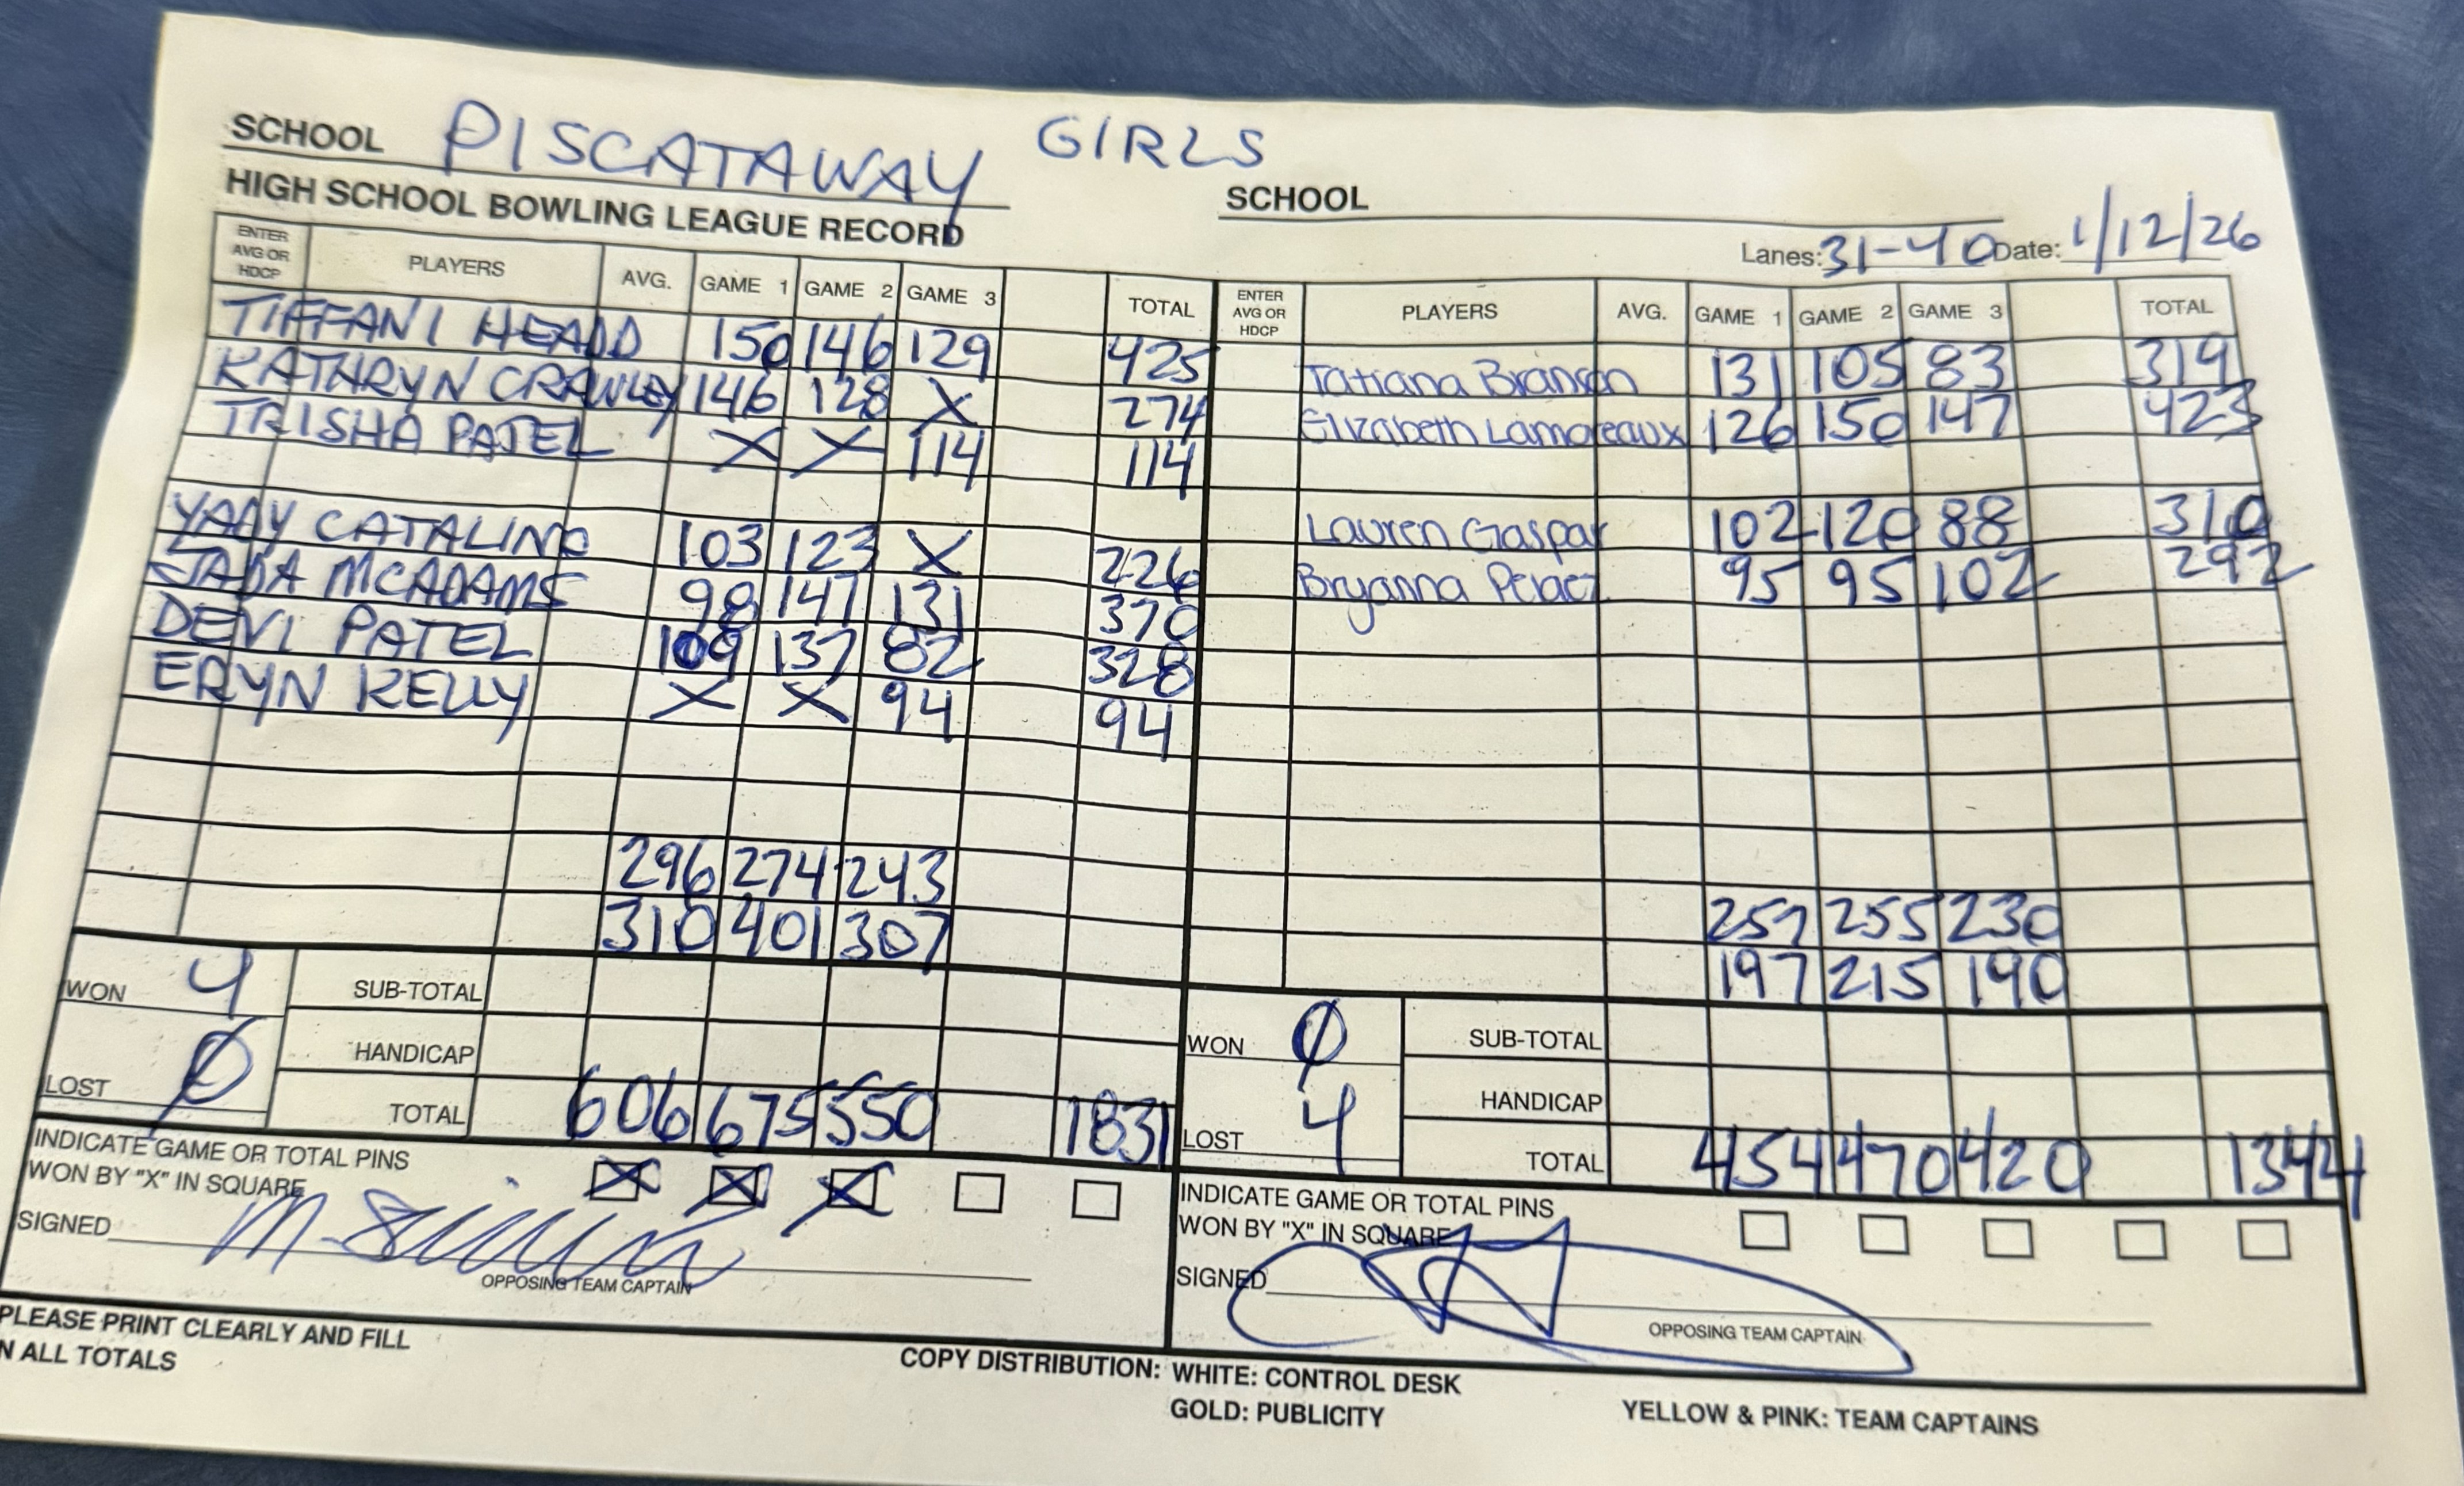 SCHOOL PISCATAWAY GIRLS
SCHOOL
HIGH SCHOOL BOWLING LEAGUE RECORD
Lanes: 31-40 Date: 1/12/26
ENTER AVG OR HDCP PLAYERS AVG. GAME 1 GAME 2 GAME 3 TOTAL
TIFFANI HEADD 150 146 129 425
KATHRYN CRAWLEY 146 128 X 274
TRISHA PATEL X X 114 114
YADY CATALINO 103 123 X 226
JADA MCADAMS 98 147 131 370
DEVI PATEL 109 137 82 328
ERYN KELLY X X 94 94
296 274 243
310 401 307
WON 4 SUB-TOTAL
HANDICAP
LOST Ø TOTAL 606 675 550 1831
INDICATE GAME OR TOTAL PINS
WON BY "X" IN SQUARE X X X
SIGNED
OPPOSING TEAM CAPTAIN
ENTER AVG OR HDCP PLAYERS AVG. GAME 1 GAME 2 GAME 3 TOTAL
Tatiana Branson 131 105 83 319
Elizabeth Lamoreaux 126 150 147 423
Lauren Gaspar 102 120 88 310
Bryanna 95 95 102 292
257 255 230
197 215 190
WON Ø SUB-TOTAL
HANDICAP
LOST 4 TOTAL 454 470 420 1344
INDICATE GAME OR TOTAL PINS
WON BY "X" IN SQUARE
SIGNED
OPPOSING TEAM CAPTAIN
PLEASE PRINT CLEARLY AND FILL
N ALL TOTALS
COPY DISTRIBUTION: WHITE: CONTROL DESK
GOLD: PUBLICITY YELLOW & PINK: TEAM CAPTAINS